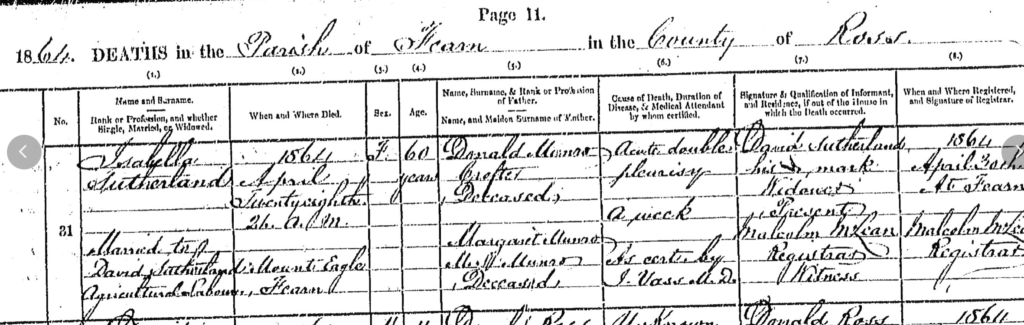 Page 11.
1864. DEATHS in the Parish of Fearn in the County of Ross.
(1.) (2.) (3.) (4.) (5.) (6.) (7.) (8.)
No.
Name and Surname.
Rank or Profession, and whether Single, Married, or Widowed.
When and Where Died.
Sex.
Age.
Name, Surname, & Rank or Profession of Father.
Name, and Maiden Surname of Mother.
Cause of Death, Duration of Disease, & Medical Attendant by whom certified.
Signature & Qualification of Informant, and Residence, if out of the House in which the Death occurred.
When and Where Registered, and Signature of Registrar.
31
Isabella
Sutherland
Married to
David Sutherland
Agricultural Labourer
1864
April
Twenty eighth
2h. A.M.
Mount Eagle
Fearn
F.
60
years
Donald Munro
Crofter
(Deceased)
Margaret Munro
M.S. Munro
(Deceased)
Acute double
pleurisy
A week
As cert. by
J. Vass M.D.
David Sutherland
his x mark
Widower
(Present)
Malcolm McLean
Registrar
Witness
1864
April 30th
At Fearn
Malcolm McLea
Registrar
Donald Ross
1864